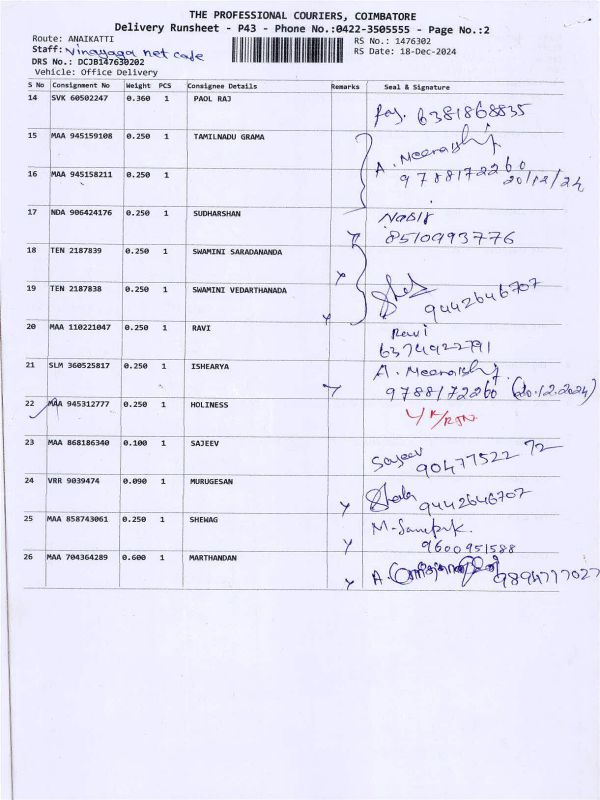 THE PROFESSIONAL COURIERS, COIMBATORE
Delivery Runsheet - P43 - Phone No.:0422-3505555 - Page No.:2
Route: ANAIKATTI
RS No.: 1476302
Staff: Vinayaga net cafe
RS Date: 18-Dec-2024
DRS No.: DCJB147630202
Vehicle: Office Delivery
S No Consignment No Weight PCS Consignee Details Remarks Seal & Signature
14 SVK 60502247 0.360 1 PAOL RAJ
6381868835
15 MAA 945159108 0.250 1 TAMILNADU GRAMA
A. Meerakshi
16 MAA 945158211 0.250 1
9788172260
20/12/24
17 NDA 906424176 0.250 1 SUDHARSHAN
Nasir
8510993776
18 TEN 2187839 0.250 1 SWAMINI SARADANANDA
19 TEN 2187838 0.250 1 SWAMINI VEDARTHANADA
9442646707
20 MAA 110221047 0.250 1 RAVI
Ravi
6374922791
21 SLM 360525817 0.250 1 ISHEARYA
A. Meerakshi
9788172260 (20.12.2024)
22 MAA 945312777 0.250 1 HOLINESS
23 MAA 868186340 0.100 1 SAJEEV
Sajeev
90477522 72
24 VRR 9039474 0.090 1 MURUGESAN
9442646707
25 MAA 858743061 0.250 1 SHEWAG
9600951588
26 MAA 704364289 0.600 1 MARTHANDAN
9894717027